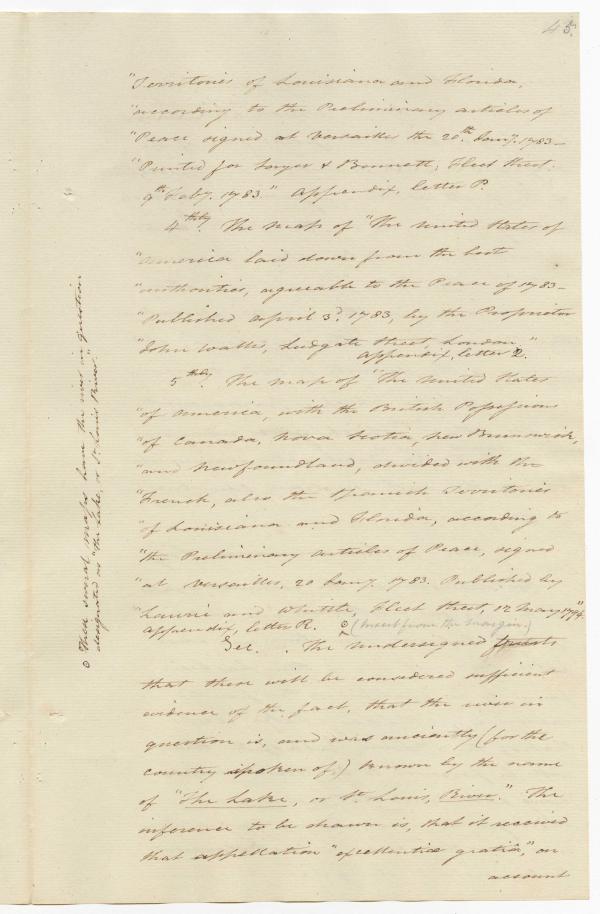 45.
"Territories of Louisiana and Florida,
"according to the Preliminary articles of
"Peace signed at Versailles the 20th Jany. 1783-
"Printed for Sayer & Bennett, Fleet Street:
9th Feby. 1783." Appendix, letter P.
4thly. The map of "The United States of
"America laid down from the best
"authorities, agreeable to the Peace of 1783-
"Published April 3d. 1783, by the Proprietor
"John Wallis, Ludgate Street, London."
Appendix, letter Q.
5thly. The map of "The United States
"of America, with the British Possessions
"of Canada, Nova Scotia, New Brunswick,
"and Newfoundland, divided with the
"French, also the Spanish Territories
"of Louisiana and Florida, according to
"the Preliminary articles of Peace, signed
"at Versailles, 20 Jany. 1783. Published by
"Laurie and Whittle, Fleet Street, 12 May 1794."
Appendix, letter R. o (Insert from the margin.)
The undersigned
that these will be considered sufficient
evidence of the fact, that the river in
question is, and was anciently (for the
country spoken of,) known by the name
of "The Lake, or St. Louis, River." The
inference to be drawn is, that it received
that appellation "excellentiæ gratiâ," on
account
o These several maps have the river in question
designated as "the Lake, or St. Louis River."